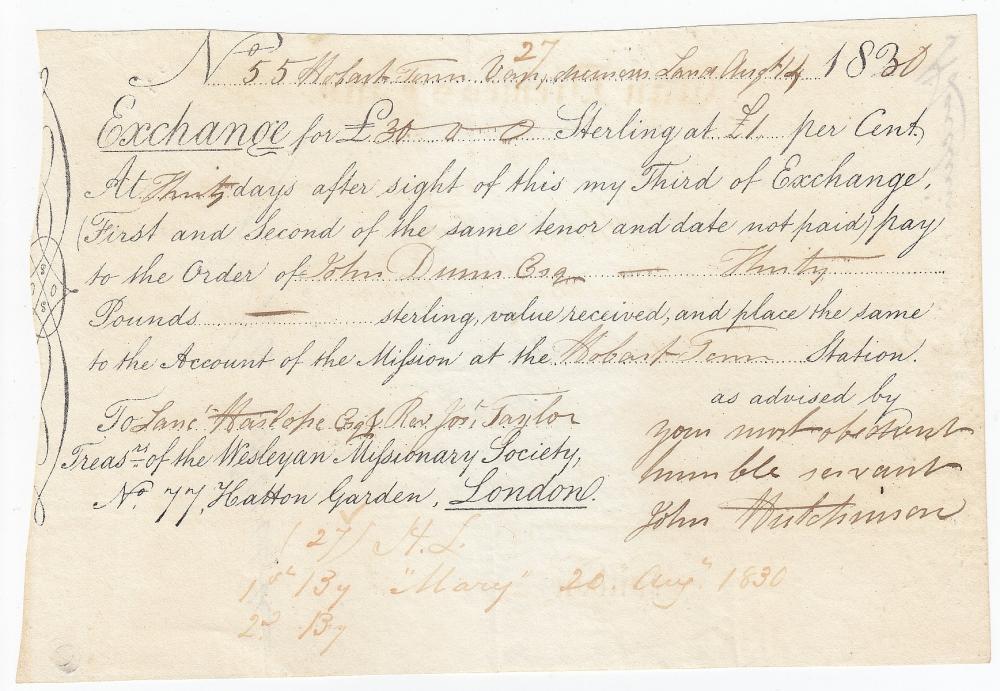 27
No 55 Hobart Town Van diemens Land Augt 14 1830
Exchange for £30 - 0 - 0 Sterling at £1 per Cent,
At Thirty days after sight of this my Third of Exchange,
(First and Second of the same tenor and date not paid) pay
to the Order of John Dunn Esq — Thirty
Pounds — sterling, value received, and place the same
to the Account of the Mission at the Hobart Town Station.
as advised by
your most obedient
humble servant
John Hutchinson
To Lanct Haslope Esq & Rev Jos. Taylor
Treasrs of the Wesleyan Missionary Society,
No. 77, Hatton Garden, London.
(27) H.L.
1st By "Mary" 20. Augt 1830
2d By